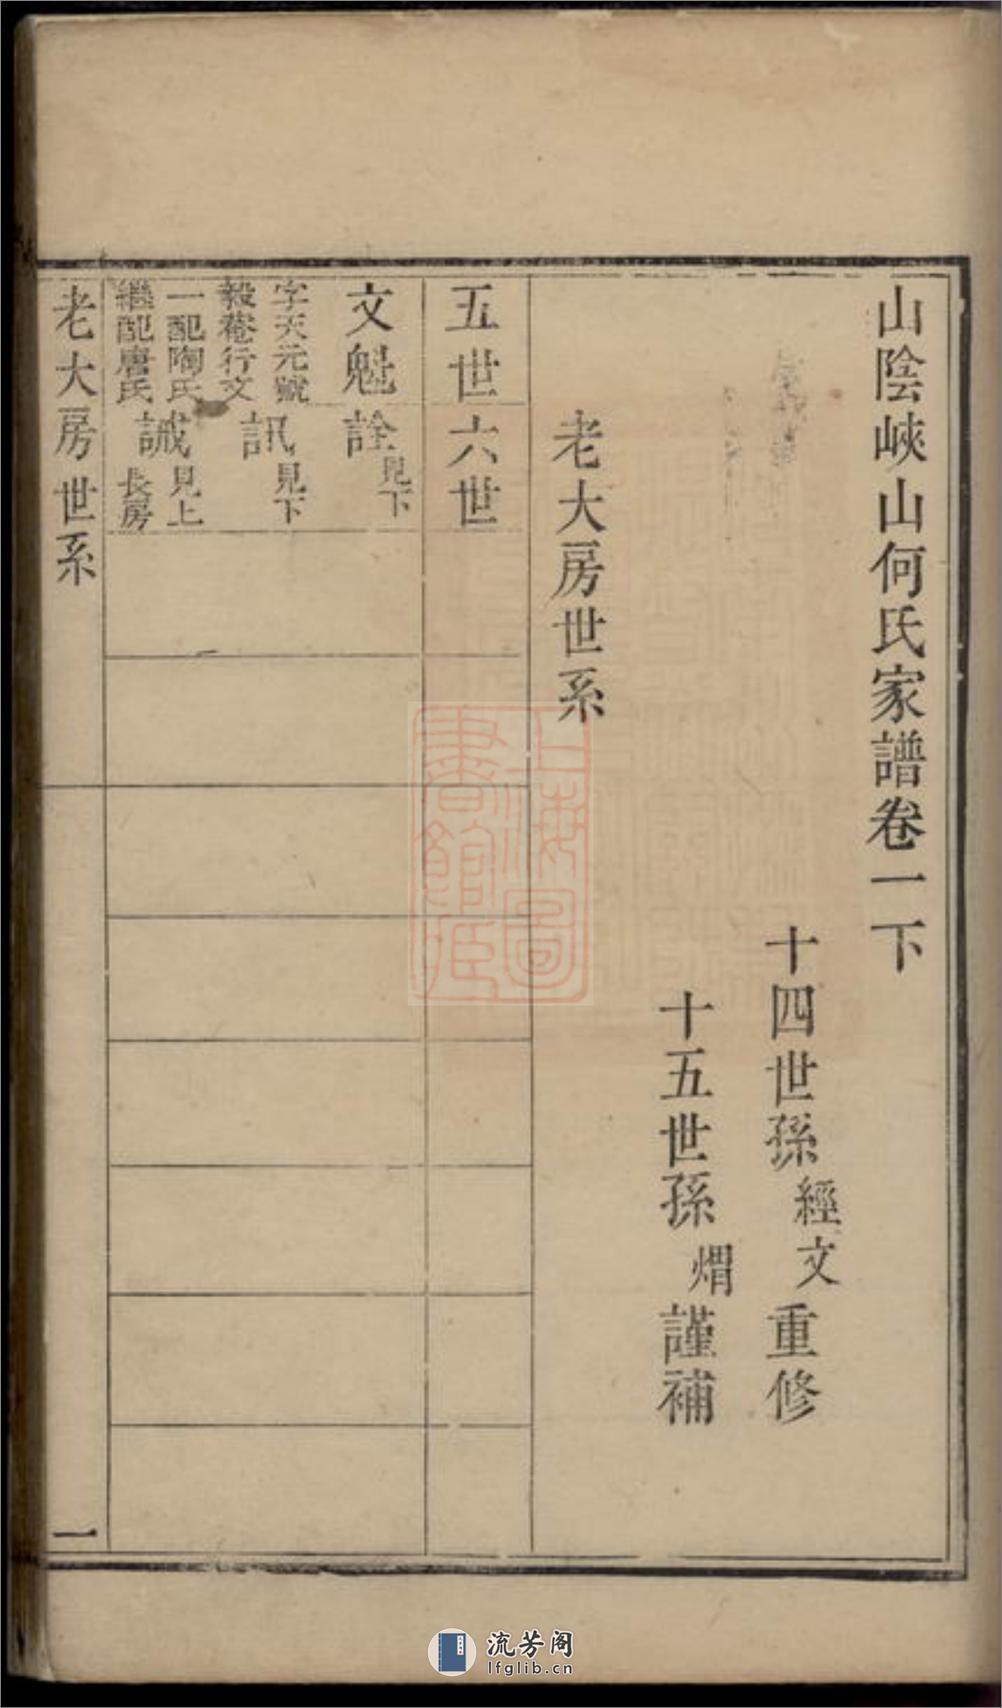 山陰峽山何氏家譜卷一下
十四世孫經文重修
十五世孫煟謹補
老大房世系
五世六世
文魁
字天元號
毅菴行文
一配陶氏
繼配唐氏
詮見下
訊見下
誠見上長房
老大房世系
一
上海圖書館藏
流芳阁
lfglib.cn